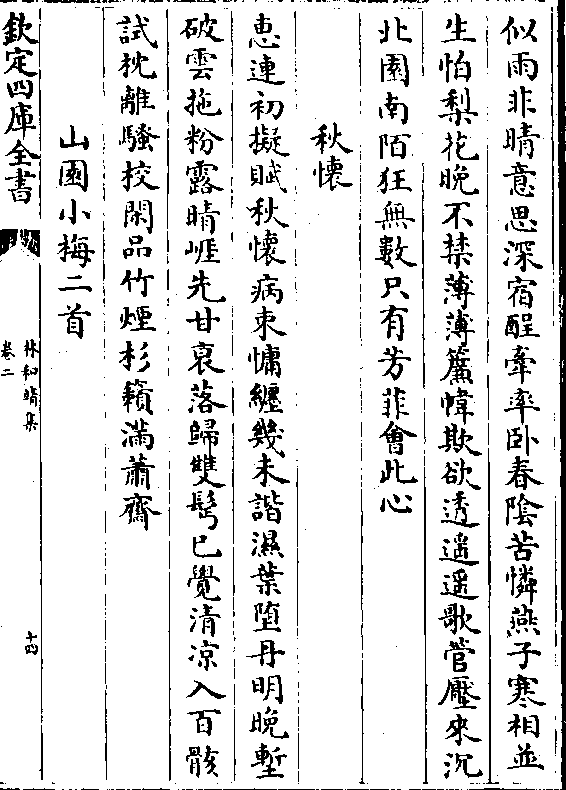 似雨非晴意思深宿酲牽率卧春陰苦憐燕子寒相並
生怕梨花晚不禁薄薄簾幃欺欲透遥遥歌管壓來沉
北園南陌狂無數只有芳菲會此心
秋懷
惠連初擬賦秋懷病朿慵纏幾未諧濕葉墮丹明晚塹
破雲拖粉露晴崕先甘衰落歸雙髩已覺清凉入百骸
試枕離騷挍閑品竹煙杉籟滿蕭齋
山園小梅二首
欽定四庫全書
林和靖集
卷二
十四